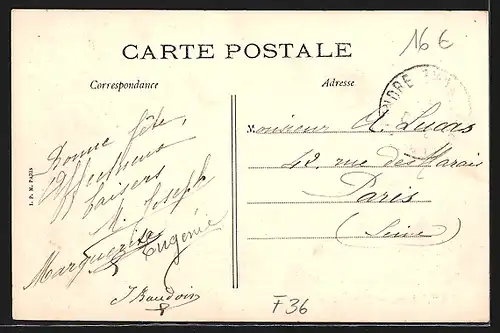 CARTE POSTALE
16 €
Correspondance
Adresse
Bonne fête,
Affectueux
baisers
Joseph
Marguerite
Eugénie
J Baudoin
Monsieur A. Lucas
42, rue des Marais
Paris
(Seine)
F36
I. P. M. PARIS
NDRE